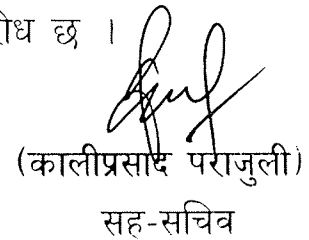 छ ।
(कालीप्रसाद पराजुली)
सह-सचिव